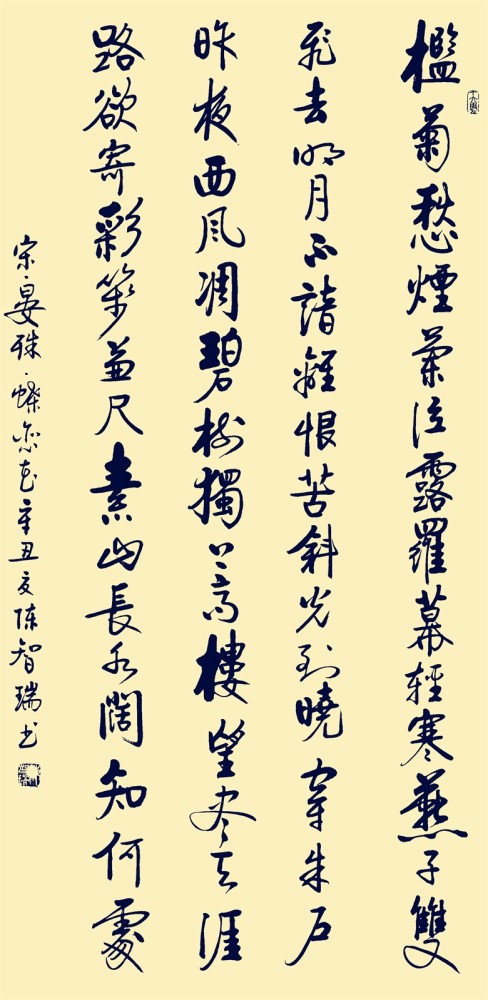 檻菊愁煙蘭泣露羅幕輕寒燕子雙
飛去明月不諳離恨苦斜光到曉穿朱戶
昨夜西風凋碧樹獨上高樓望盡天涯
路欲寄彩箋兼尺素山長水闊知何處
宋·晏殊·蝶恋花辛丑夏陈智瑞书